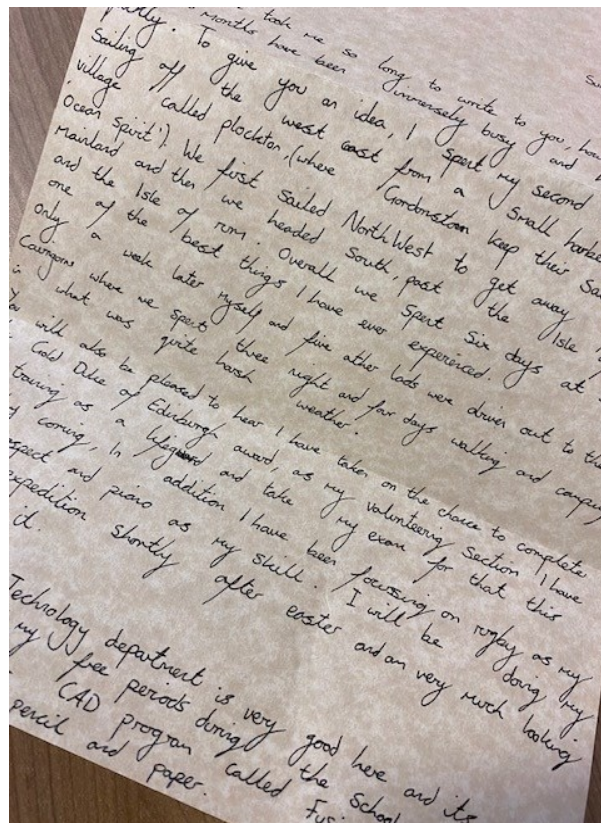 took me so long to write to you, how
months have been immensely busy and
To give you an idea, I spent my second
Sailing off the west coast from a small harbor
village called plockton, (where Gordonstoun keep their Sai
Ocean Spirit'). We first sailed North West to get away
Mainland and then we headed South, past the Isle
and the Isle of rum. Overall we Spent Six days at
one of the best things I have ever experienced.
only a weak later myself and five other lads were driven out to the
Cairngorms where we spent three night and four days walking and camping
in what was quite harsh weather.
You will also be pleased to hear I have taken on the chance to complete
Gold Duke of Edinburgh award, as my volunteering Section I have
training as a lifeguard and take my exam for that this
coming, In addition I have been focussing on rugby as my
and piano as my skill. I will be doing my
expedition shortly after easter and am very much looking
it.
Technology department is very good here and its
my free periods during the School
CAD program called Fusi
pencil and paper.